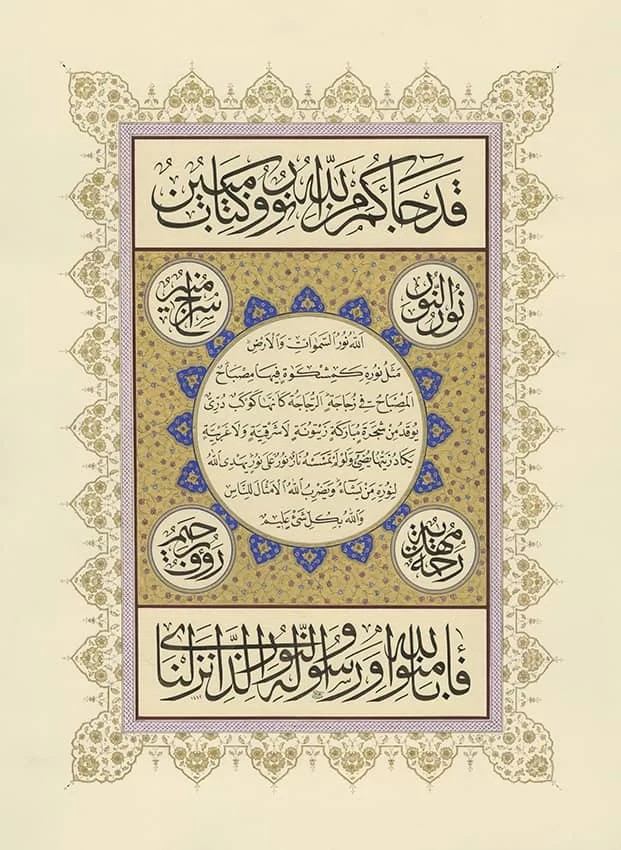 قد جاءكم من الله نور وكتاب مبين
نور النور
سراج منير
الله نور السموات والارض
مثل نوره كمشكوة فيها مصباح
المصباح في زجاجة الزجاجة كانها كوكب دري
يوقد من شجرة مباركة زيتونة لا شرقية ولا غربية
يكاد زيتها يضيء ولو لم تمسسه نار نور على نور يهدي الله
لنوره من يشاء ويضرب الله الامثال للناس
والله بكل شيء عليم
رحمة مهدية
رؤوف رحيم
فآمنوا بالله ورسوله والنور الذي انزلنا